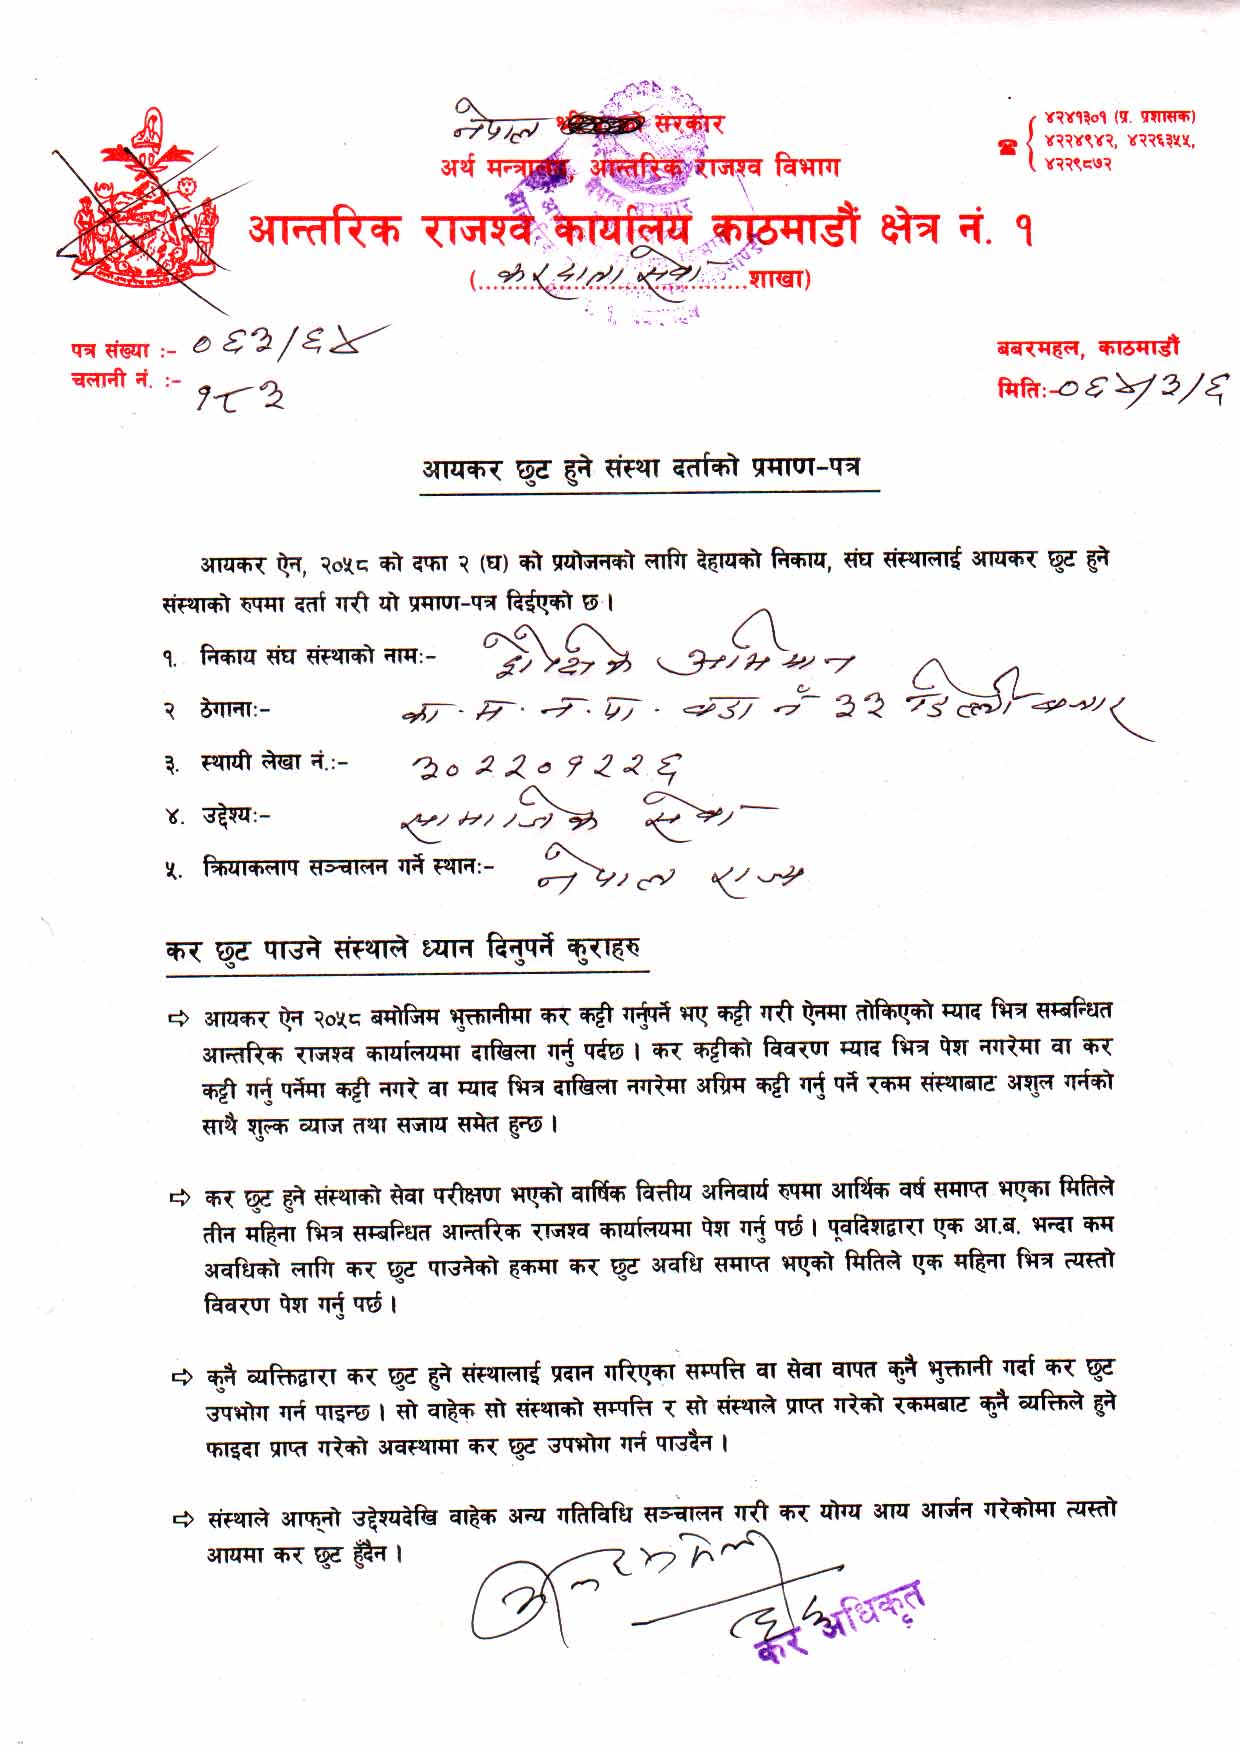 नेपाल सरकार
अर्थ मन्त्रालय, आन्तरिक राजश्व विभाग
आन्तरिक राजश्व कार्यालय काठमाडौं क्षेत्र नं. १
(करदाता सेवा शाखा)
४२४१३०१ (प्र. प्रशासक)
४२२४९४२, ४२२६३५५,
४२२९८७२
पत्र संख्या :- ०६३/६४
चलानी नं. :- १८३
बबरमहल, काठमाडौं
मिति:-०६४/३/६
आयकर छुट हुने संस्था दर्ताको प्रमाण-पत्र
आयकर ऐन, २०५८ को दफा २ (घ) को प्रयोजनको लागि देहायको निकाय, संघ संस्थालाई आयकर छुट हुने
संस्थाको रुपमा दर्ता गरी यो प्रमाण-पत्र दिईएको छ ।
१. निकाय संघ संस्थाको नाम:- शैक्षिक अभियान
२ ठेगाना:- का.म.न.पा. वडा नं ३३ डिल्लीबजार
३. स्थायी लेखा नं.:- ३०२२०१२२६
४. उद्देश्य:- सामाजिक सेवा
५. क्रियाकलाप सञ्चालन गर्ने स्थान:- नेपाल राज्य
कर छुट पाउने संस्थाले ध्यान दिनुपर्ने कुराहरु
⇨ आयकर ऐन २०५८ बमोजिम भुक्तानीमा कर कट्टी गर्नुपर्ने भए कट्टी गरी ऐनमा तोकिएको म्याद भित्र सम्बन्धित
आन्तरिक राजश्व कार्यालयमा दाखिला गर्नु पर्दछ । कर कट्टीको विवरण म्याद भित्र पेश नगरेमा वा कर
कट्टी गर्नु पर्नेमा कट्टी नगरे वा म्याद भित्र दाखिला नगरेमा अग्रिम कट्टी गर्नु पर्ने रकम संस्थाबाट अशुल गर्नको
साथै शुल्क व्याज तथा सजाय समेत हुन्छ ।
⇨ कर छुट हुने संस्थाको सेवा परीक्षण भएको वार्षिक वित्तीय अनिवार्य रुपमा आर्थिक वर्ष समाप्त भएका मितिले
तीन महिना भित्र सम्बन्धित आन्तरिक राजश्व कार्यालयमा पेश गर्नु पर्छ । पूर्वादेशद्वारा एक आ.ब. भन्दा कम
अवधिको लागि कर छुट पाउनेको हकमा कर छुट अवधि समाप्त भएको मितिले एक महिना भित्र त्यस्तो
विवरण पेश गर्नु पर्छ ।
⇨ कुनै व्यक्तिद्वारा कर छुट हुने संस्थालाई प्रदान गरिएका सम्पत्ति वा सेवा वापत कुनै भुक्तानी गर्दा कर छुट
उपभोग गर्न पाइन्छ । सो वाहेक सो संस्थाको सम्पत्ति र सो संस्थाले प्राप्त गरेको रकमबाट कुनै व्यक्तिले हुने
फाइदा प्राप्त गरेको अवस्थामा कर छुट उपभोग गर्न पाउदैन ।
⇨ संस्थाले आफ्नो उद्देश्यदेखि वाहेक अन्य गतिविधि सञ्चालन गरी कर योग्य आय आर्जन गरेकोमा त्यस्तो
आयमा कर छुट हुँदैन ।
कर अधिकृत